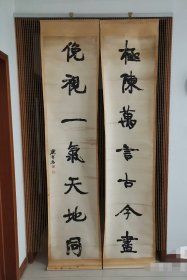 極陳萬言古今盡
俛視一氣天地同